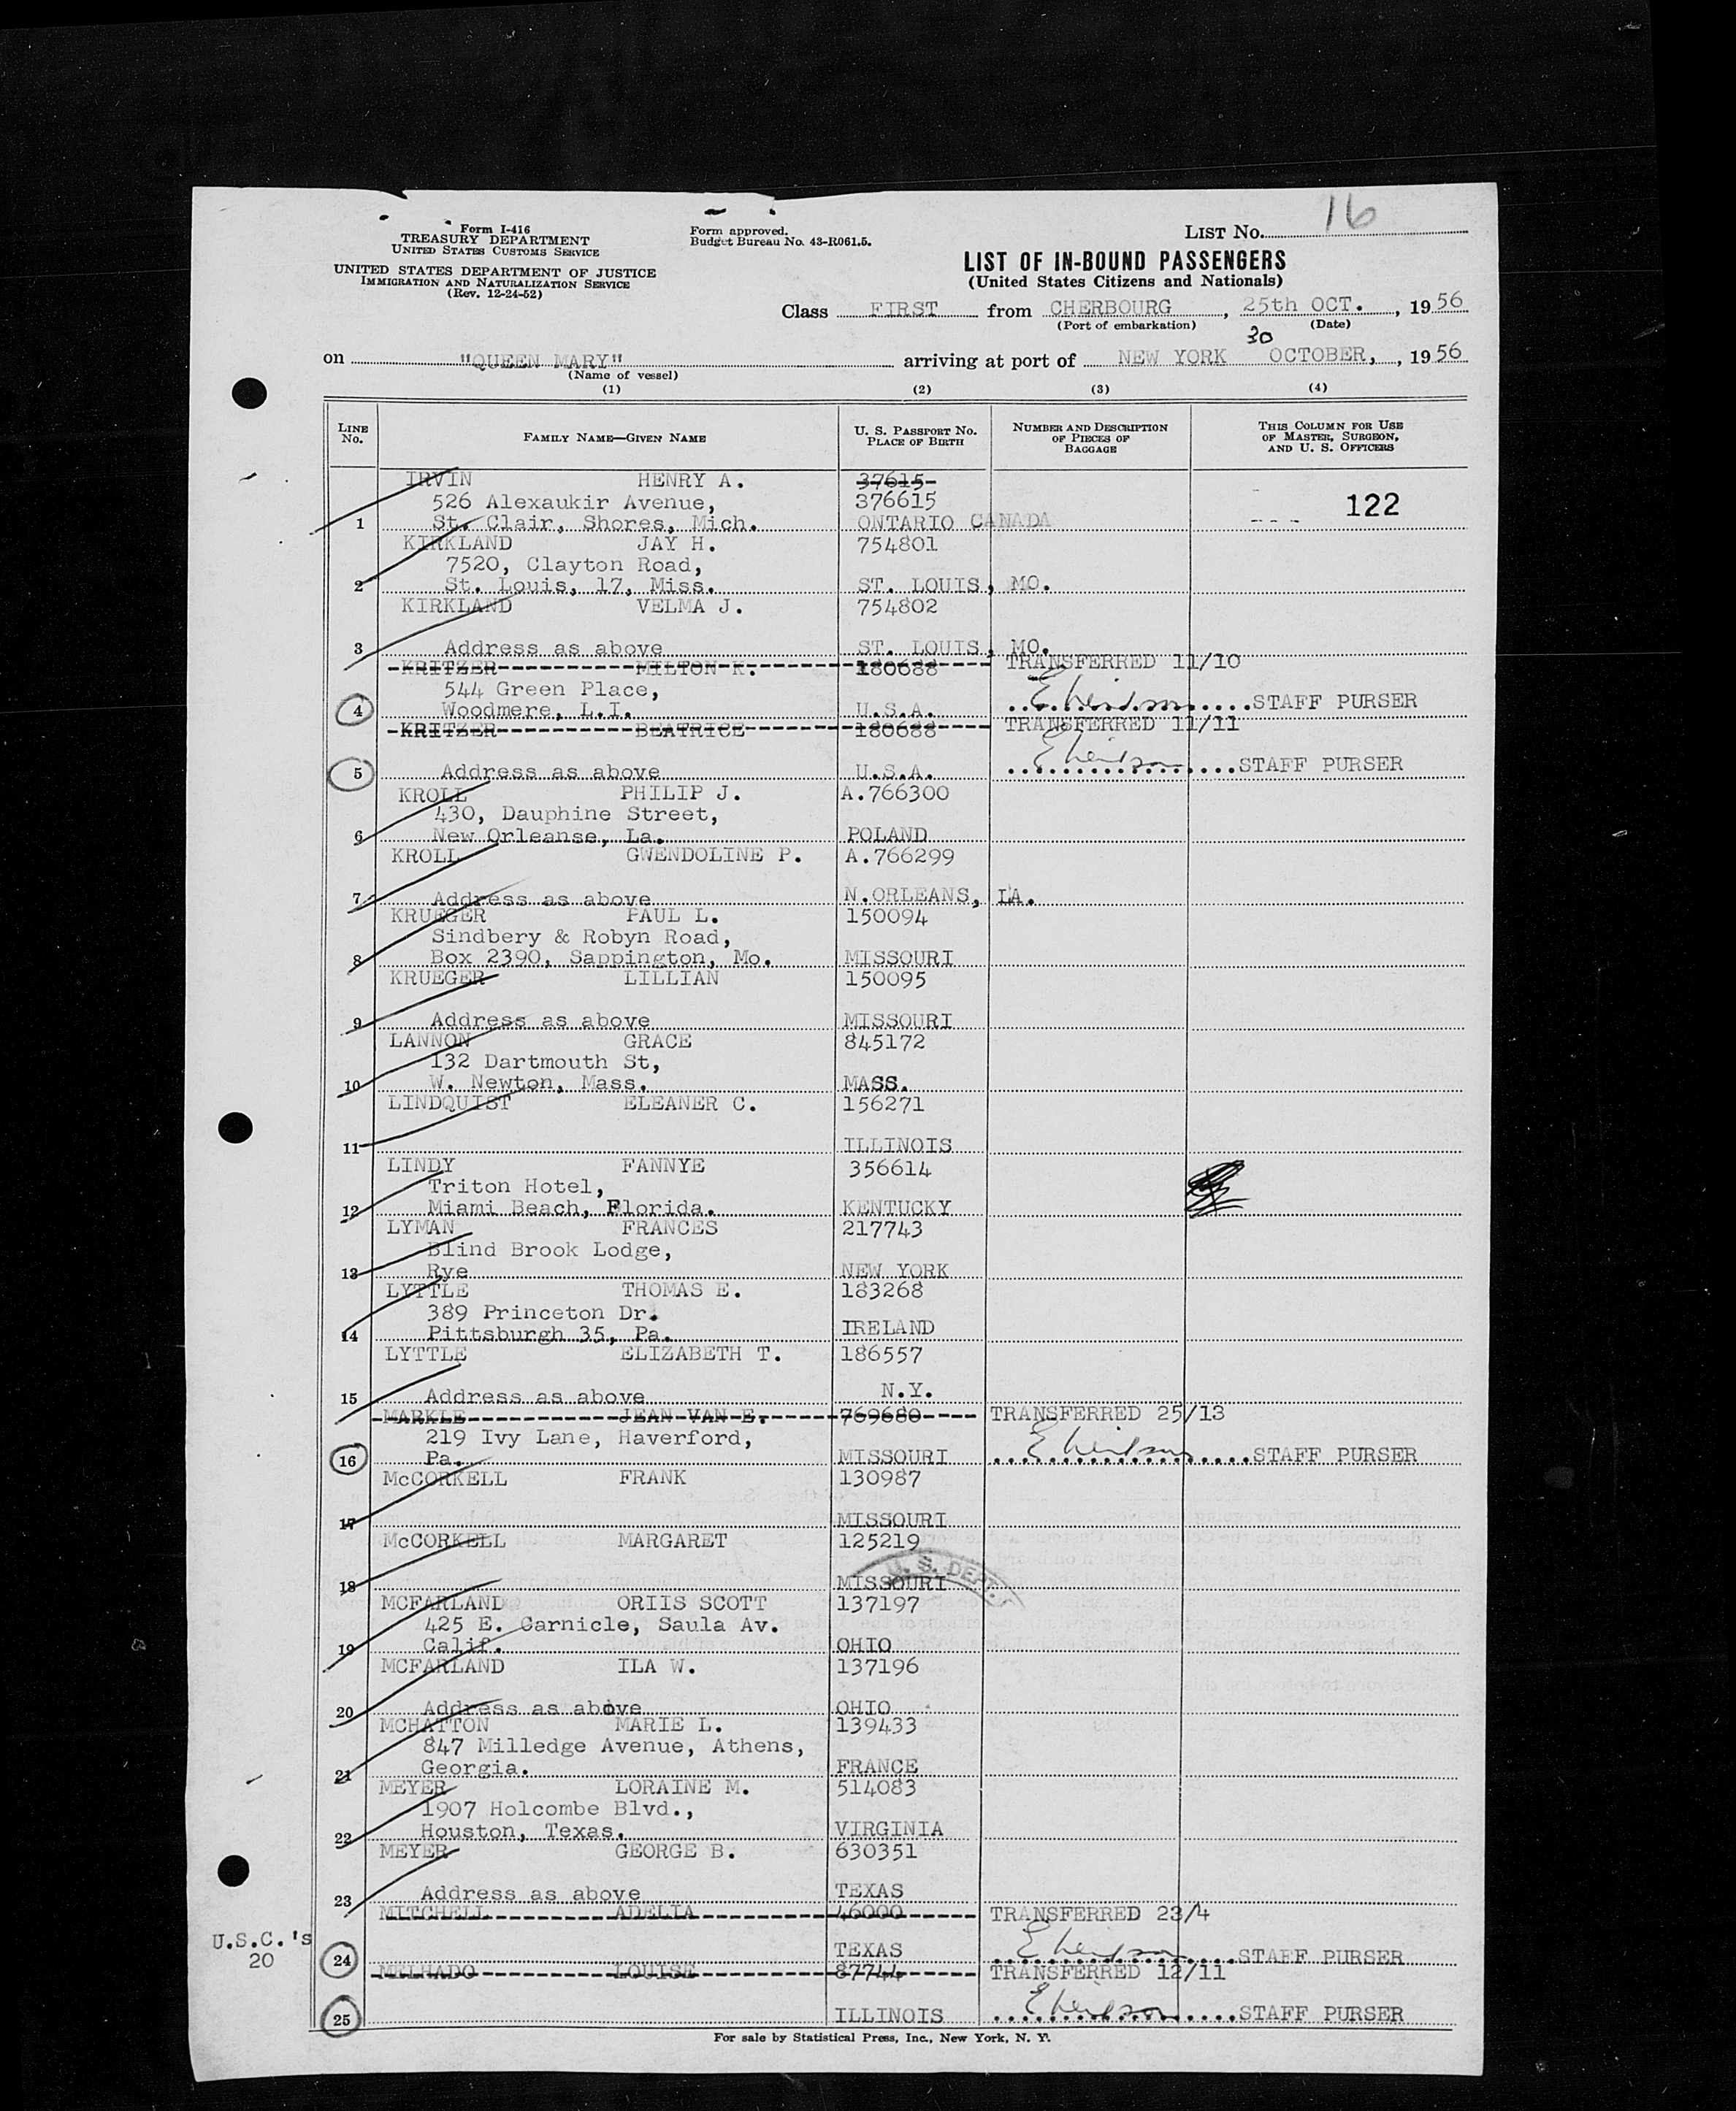 16
Form I-416
TREASURY DEPARTMENT
UNITED STATES CUSTOMS SERVICE
UNITED STATES DEPARTMENT OF JUSTICE
IMMIGRATION AND NATURALIZATION SERVICE
(Rev. 12-24-52)
Form approved.
Budget Bureau No. 43-R061.5.
LIST No.
LIST OF IN-BOUND PASSENGERS
(United States Citizens and Nationals)
Class FIRST from CHERBOURG, 25th OCT., 1956
(Port of embarkation) (Date)
30
on "QUEEN MARY" arriving at port of NEW YORK OCTOBER, 1956
(Name of vessel)
(1) (2) (3) (4)
LINE No. FAMILY NAME—GIVEN NAME U. S. PASSPORT No. PLACE OF BIRTH NUMBER AND DESCRIPTION OF PIECES OF BAGGAGE THIS COLUMN FOR USE OF MASTER, SURGEON, AND U. S. OFFICERS
IRVIN HENRY A. 37615
526 Alexaukir Avenue, 376615 122
1 St. Clair, Shores, Mich. ONTARIO CANADA
KIRKLAND JAY H. 754801
7520, Clayton Road,
2 St. Louis, 17, Miss. ST. LOUIS, MO.
KIRKLAND VELMA J. 754802
3 Address as above ST. LOUIS, MO.
KRITZER MILTON K. 180688 TRANSFERRED 11/10
544 Green Place,
4 Woodmere, L.I. U.S.A. STAFF PURSER
KRITZER BEATRICE 180688 TRANSFERRED 11/11
5 Address as above U.S.A. STAFF PURSER
KROLL PHILIP J. A.766300
430, Dauphine Street,
6 New Orleanse, La. POLAND
KROLL GWENDOLINE P. A.766299
7 Address as above N.ORLEANS, LA.
KRUEGER PAUL L. 150094
Sindbery & Robyn Road,
8 Box 2390, Sappington, Mo. MISSOURI
KRUEGER LILLIAN 150095
9 Address as above MISSOURI
LANNON GRACE 845172
132 Dartmouth St,
10 W. Newton, Mass. MASS.
LINDQUIST ELEANER C. 156271
11 ILLINOIS
LINDY FANNYE 356614
Triton Hotel,
12 Miami Beach, Florida. KENTUCKY
LYMAN FRANCES 217743
Blind Brook Lodge,
13 Rye NEW YORK
LYTTLE THOMAS E. 183268
389 Princeton Dr.
14 Pittsburgh 35, Pa. IRELAND
LYTTLE ELIZABETH T. 186557
15 Address as above N.Y.
MARKLE JEAN VAN E. 769680 TRANSFERRED 25/13
219 Ivy Lane, Haverford,
16 Pa. MISSOURI STAFF PURSER
McCORKELL FRANK 130987
17 MISSOURI
McCORKELL MARGARET 125219
U. S. DEPT.
18 MISSOURI
MCFARLAND ORIIS SCOTT 137197
425 E. Carnicle, Saula Av.
19 Calif. OHIO
MCFARLAND ILA W. 137196
20 Address as above OHIO
MCHATTON MARIE L. 139433
847 Milledge Avenue, Athens,
21 Georgia. FRANCE
MEYER LORAINE M. 514083
1907 Holcombe Blvd.,
22 Houston, Texas. VIRGINIA
MEYER GEORGE B. 630351
23 Address as above TEXAS
MITCHELL ADELIA 46000 TRANSFERRED 23/4
U.S.C.'s
20
24 TEXAS STAFF PURSER
MELHADO LOUISE 87744 TRANSFERRED 12/11
25 ILLINOIS STAFF PURSER
For sale by Statistical Press, Inc., New York, N. Y.